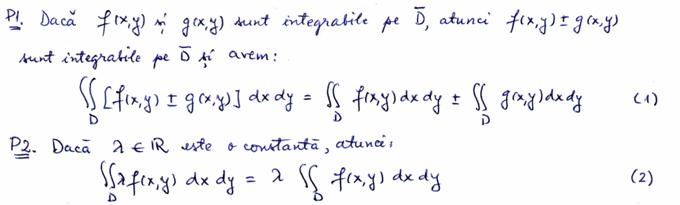 P1. Dacă f(x,y) și g(x,y) sunt integrabile pe D̅, atunci f(x,y) ± g(x,y)
sunt integrabile pe D̅ și avem:
∬_D [f(x,y) ± g(x,y)] dx dy = ∬_D f(x,y) dx dy ± ∬_D g(x,y) dx dy (1)
P2. Dacă λ ∈ ℝ este o constantă, atunci:
∬_D λ f(x,y) dx dy = λ ∬_D f(x,y) dx dy (2)